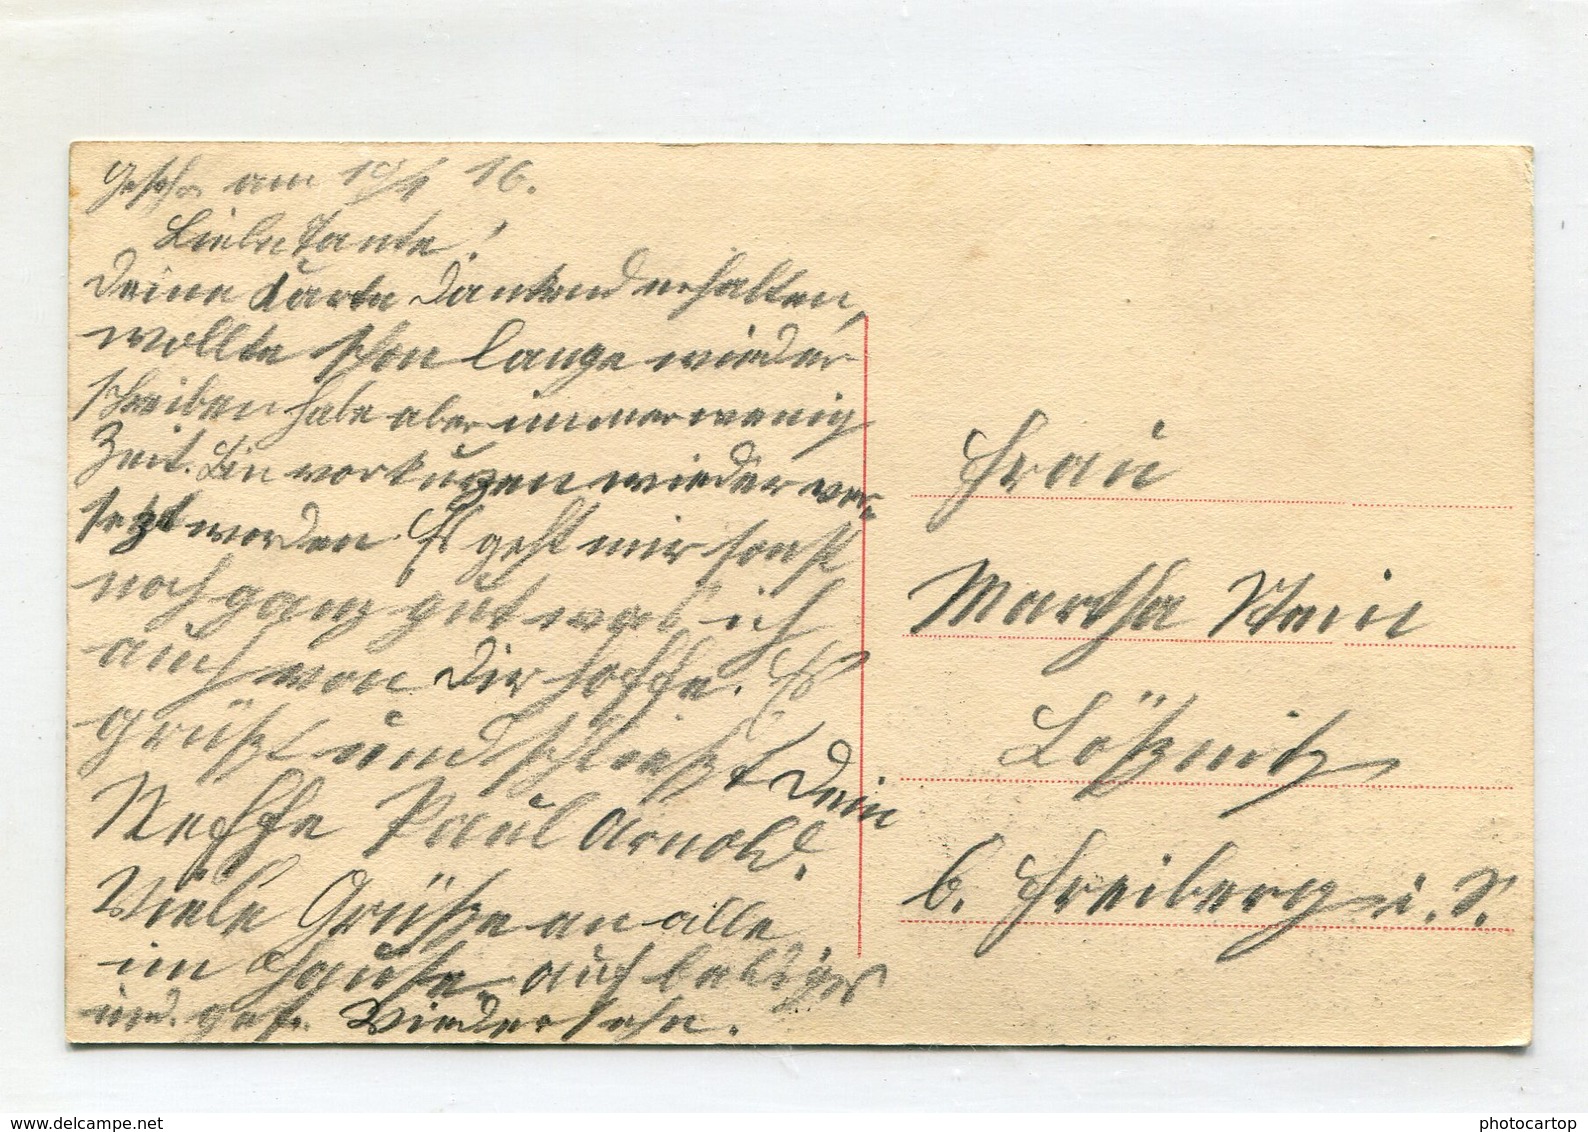 Gesch. am 10/4 16.
Liebe Tante!
Deine Karte dankend erhalten,
wollte schon lange wieder
schreiben habe aber immer wenig
Zeit. Bin vor kurzen wieder ver-
setzt worden. Es geht mir sonst
noch ganz gut was ich
auch von Dir hoffe. Es
grüßt und schließt Dein
Neffe Paul Arnold.
Viele Grüße an alle
im Hause, auf baldiges
und ges. Wiedersehn.
Frau
Martha Stein
Lößnitz
b. Freiberg i. S.
www.delcampe.net
photocartop